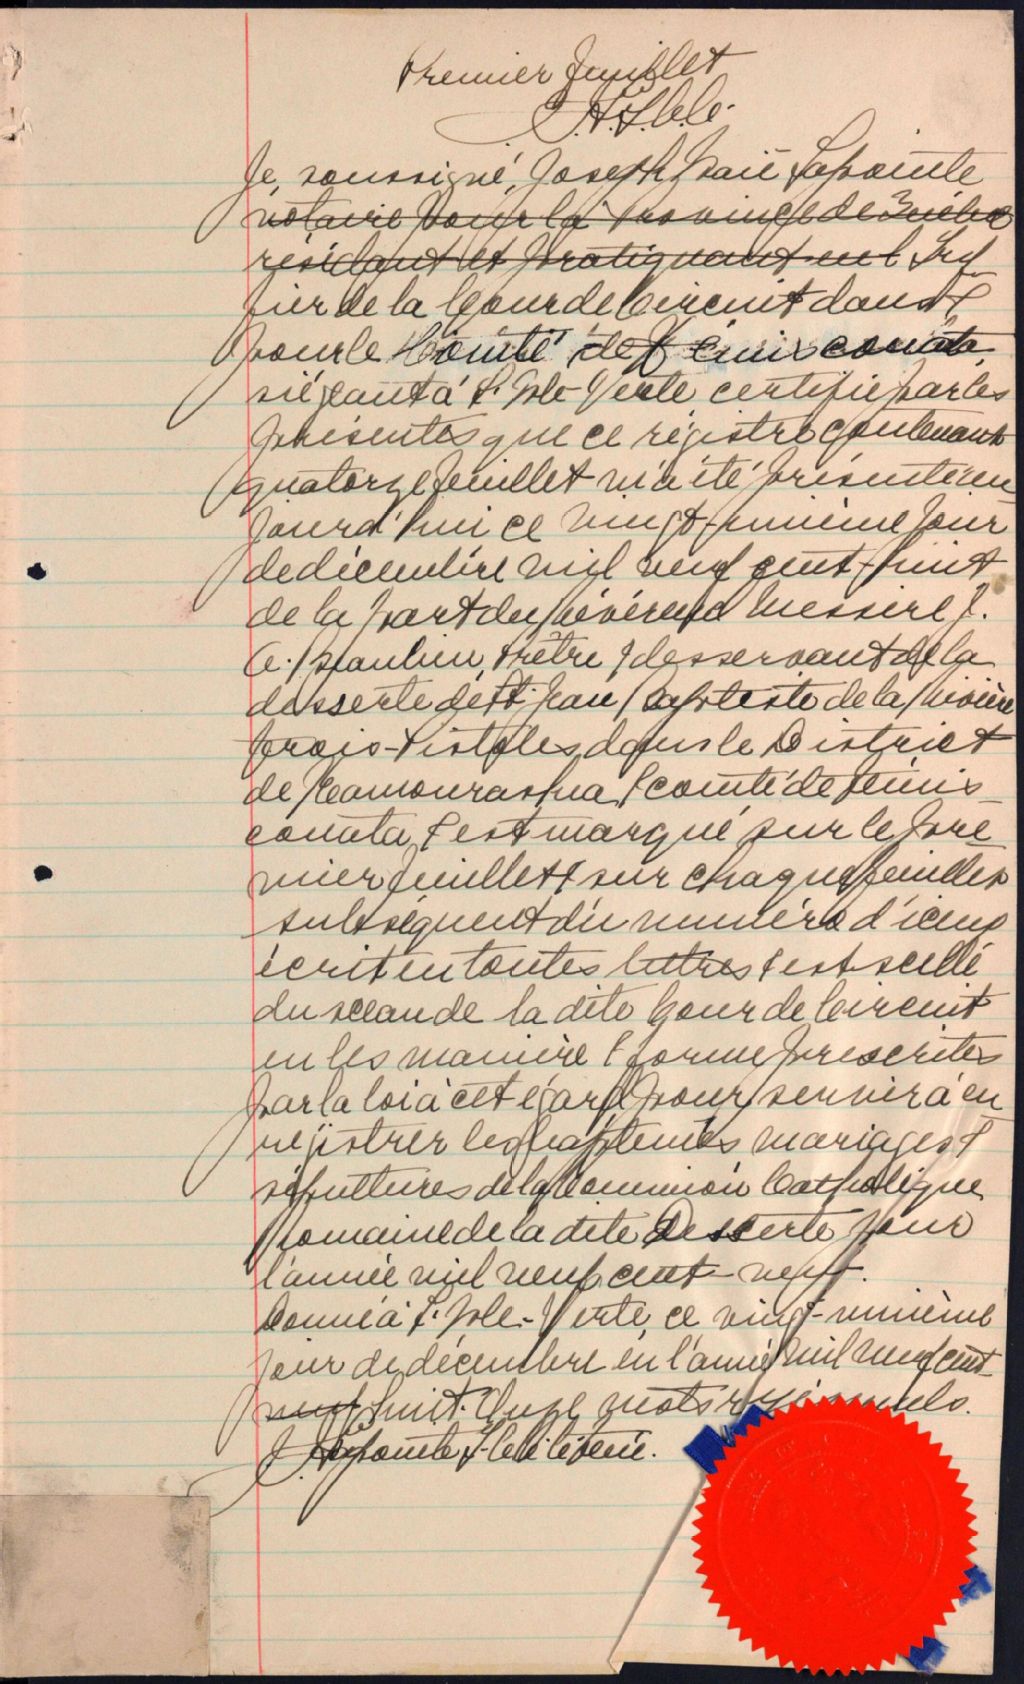 Premier feuillet
Je, soussigné, Joseph Lapointe
notaire pour la province de Québec
résidant et pratiquant en l Gref
fier de la Cour de Circuit dans &
pour le Comité de Témiscouata
siégeant à L'Isle-Verte certifie par les
présentes que ce régistre contenant
quatorze feuillet m'a été présenté au
jourd'hui ce vingt-unième jour
de décembre mil neuf cent-huit
de la part du Révérend Messire J.
C. Beaulieu, Prêtre & desservant de la
desserte de St. Jean Baptiste de la Rivière
Trois-Pistoles dans le District
de Kamouraska & comté de Témis
couata, & est marqué sur le pre
mier feuillet & sur chaque feuillet
subséquent du numéro d'iceux
écrit en toutes lettres & est scellé
du sceau de la dite Cour de Circuit
en les manière & forme prescrites
par la loi à cet égard pour servir à en
régistrer les baptêmes mariages &
sépultures de la Communion Catholique
Romaine de la dite Desserte pour
l'année mil neuf cent-neuf.
Donné à L'Isle-Verte, ce vingt-unième
jour de décembre en l'année mil neuf cent
neuf huit. Onze mots rayés nuls.
J. Lapointe